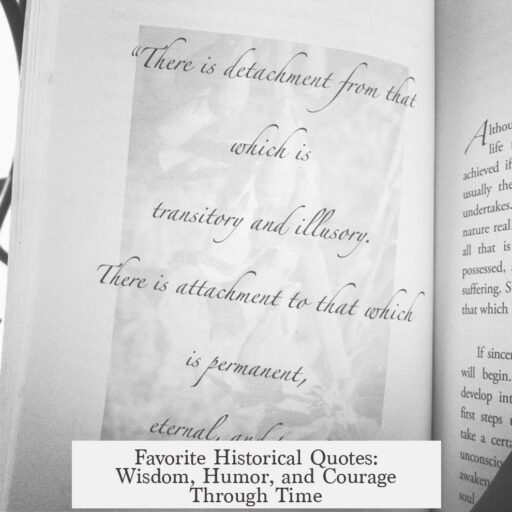 “There is detachment from that
which is
transitory and illusory.
There is attachment to that which
is permanent,
eternal, and
Altho
life
achieved if
usually the
undertakes.
nature real
all that is
possessed,
suffering. S
that which
If since
will begin.
develop int
first steps
take a certa
unconscio
awaken
soul
Favorite Historical Quotes:
Wisdom, Humor, and Courage
Through Time